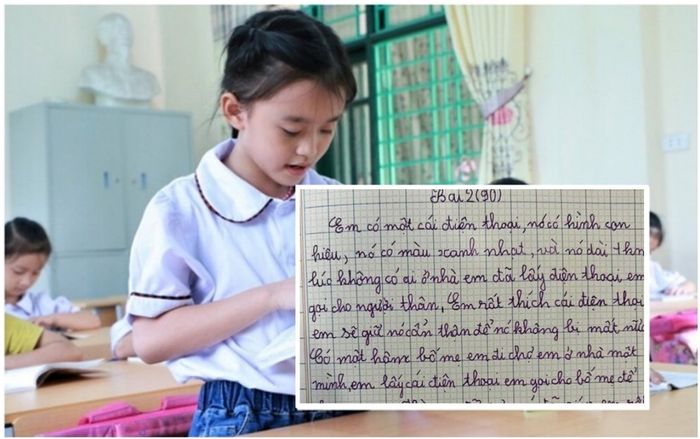 Bài 2 (90)
Em có một cái điện thoại, nó có hình con
hiêu, nó có màu xanh nhạt, và nó dài
lúc không có ai ở nhà em đã lấy điện thoại, em
gọi cho người thân, Em rất thích cái điện thoại
em sẽ giữ nó cẩn thận để nó không bị mất nữa
Có một hôm bố mẹ em đi chợ em ở nhà một
mình, em lấy cái điện thoại em gọi cho bố mẹ để